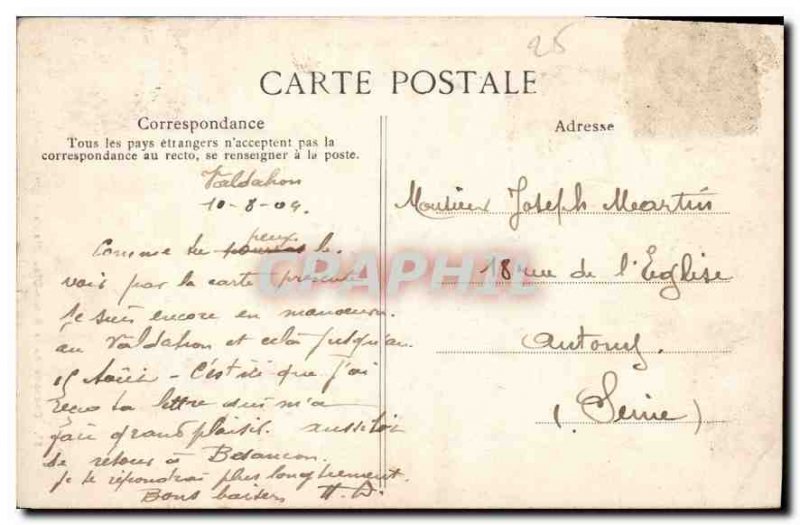 25
CARTE POSTALE
Correspondance
Tous les pays étrangers n'acceptent pas la
correspondance au recto, se renseigner à la poste.
Adresse
Valdahon
10-8-09.
peux
Comme tu pourras le
vois par la carte présente
Je suis encore en manoeuv.
au Valdahon et cela jusqu'au
15 Août - C'est ici que j'ai
reçu ta lettre qui m'a
fait grand plaisir. aussitôt
de retour à Besancon.
je te répondrai plus longuement.
Bons baisers H. D.
Monsieur Joseph Martin
18 rue de l'Eglise
Antony.
(Seine)
CPAPHIL